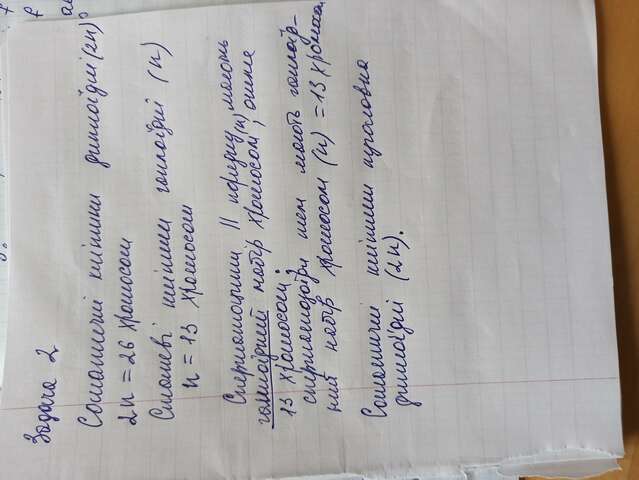 Задача 2
Соматичні клітини диплоїдні (2n):
2n = 26 хромосом
Статеві клітини гаплоїдні (n)
n = 13 хромосом
Сперматоцити II порядку мають
гаплоїдний набір хромосом (n), отже
13 хромосом;
сперматозоїди теж мають гаплоїд-
ний набір хромосом (n) = 13 хромосом
Соматичні клітини пуголовка
диплоїдні (2n).